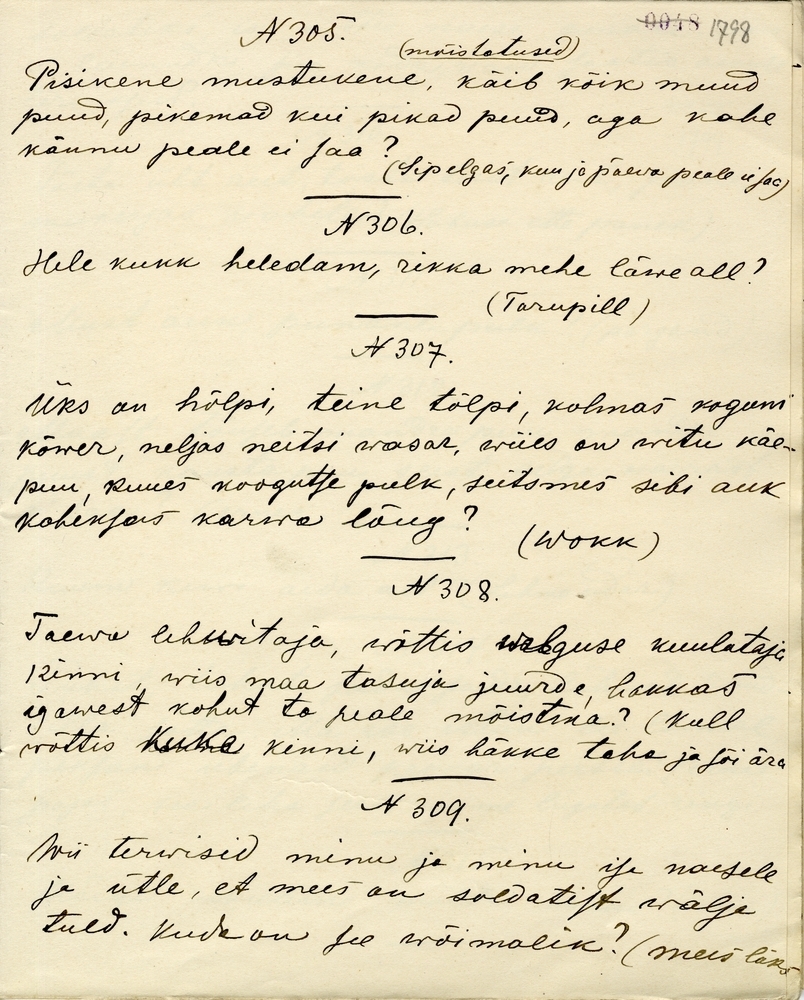 0048 1798
N 305.
(mõistatused)
Pisikene mustukene, käib kõik muud
puud, pikemad kui pikad puud, aga kahe
kännu peale ei saa?
(Sipelgas, kuu ja päewa peale ei saa)
N 306.
Hele kukk heledam, rikka mehe läwe all?
(Torupill)
N 307.
Üks on hõlpi, teine tõlpi, kolmas koguni
kõwer, neljas neitsi wasar, wiies on witu käe-
puu, kuues koogutse pulk, seitsmes sibi auk
kaheksas karwa lõug?
(Wokk)
N 308.
Taewa lehwitaja, wõttis walguse kuulutaja
kinni, wiis maa tasuja juurde, hakkas
igawest kohut ta peale mõistma? (Kull
wõttis Kuke kinni, wiis häkke taha ja sõi ära
N 309.
Wii terwisid minu ja minu isa naesele
ja ütle, et mees on soldatist wälja
tuld. Kuda on see wõimalik? (mees läks